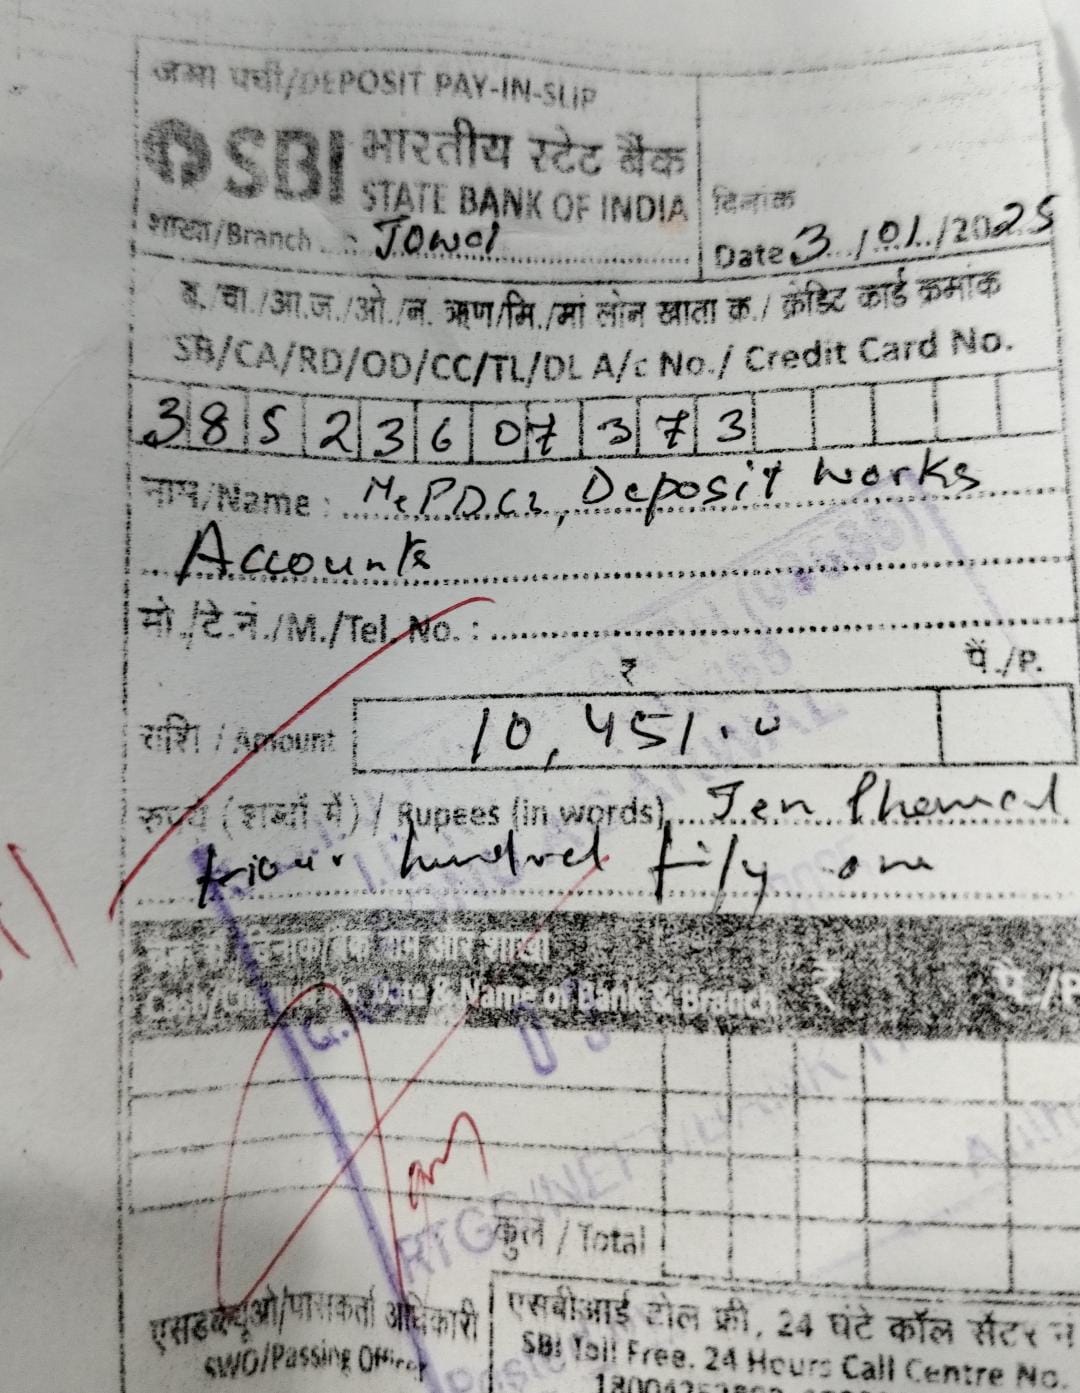 जमा पर्ची/DEPOSIT PAY-IN-SLIP
SBI भारतीय स्टेट बैंक
STATE BANK OF INDIA
शाखा/Branch : Jowai
दिनांक
Date 3/01/2025
ब./चा./आ.ज./ओ./न. ऋण/मि./मां लोन खाता क्र./ क्रेडिट कार्ड क्रमांक
SB/CA/RD/OD/CC/TL/DL A/c No./ Credit Card No.
38523607373
नाम/Name : MePDCL, Deposit works
Accounts
मो./टे.नं./M./Tel. No. :
₹ पै./P.
राशि / Amount 10,451.0
रुपये (शब्दों में) / Rupees (in words) Ten
four hundred fifty one
Cash/Cheque No. Date & Name of Bank & Branch ₹ पै./P
RTGS/NEFT
कुल / Total
एसडब्ल्यूओ/पासकर्ता अधिकारी
SWO/Passing Officer
एसबीआई टोल फ्री, 24 घंटे कॉल सेंटर नं
SBI Toll Free. 24 Hours Call Centre No.